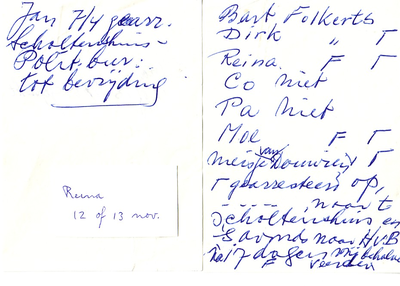 Jan 7/4 gearr.
Scholtenshuis -
Polit. bur.
tot bevrijding
Reina
12 of 13 nov.
Bart Folkerts
Dirk " Γ
Reina. F Γ
Co niet
Pa niet
Moe F Γ
meisje van Γ
Γ gearresteerd op,
naar 't
Scholtenshuis en
's avonds naar HvB
Na 17 dagen
F